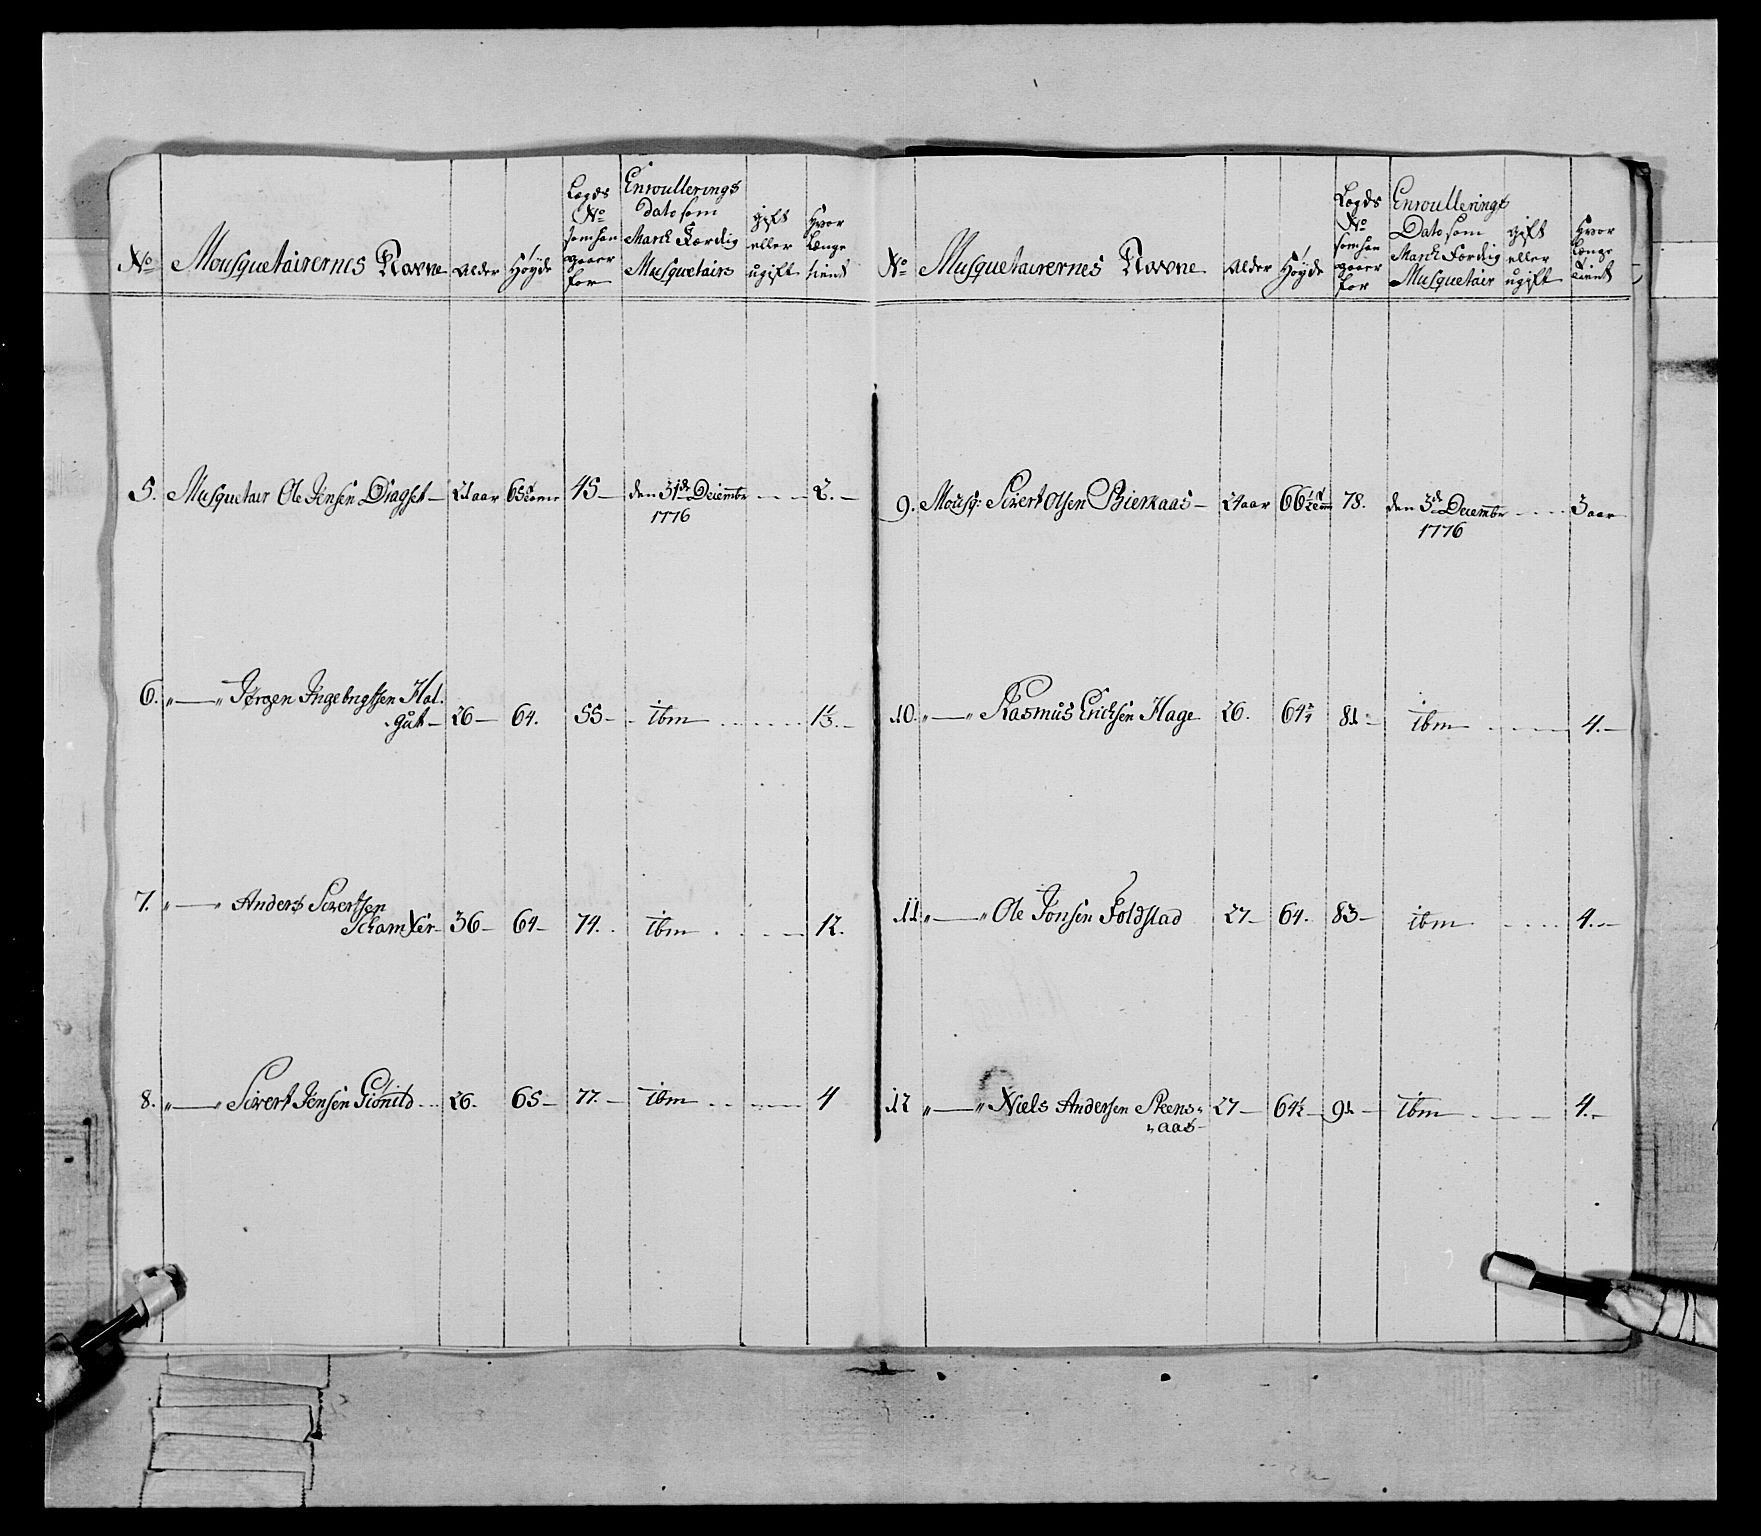 No Mousquetairernes Navne Alder Høyde Lægds No som han gaaer for Enroullerings Dato som March Færdig Musquetairs gift eller ugift Hvor Længe tient
5. Musquetair Ole Jensen Dragset — 21 aar 65 45 — den 31de Decembr — 2. —
1776
6. „—„ Jørgen Ingebrigtsen Hal-
gút — 26 — 64. 55 — ibm 13. —
7. „—„ Anders Sivertsen
36 — 64 — 74. ibm 12.
8. „—„ Sivert Jensen 26. 65 — 77. — ibm 4
No Musquetairernes Navne Alder Høyde Lægds No som han gaaer for Enroullerings Dato som March Færdig Musquetair gift eller ugift Hvor Længe Tient
9. Mousq: Sivert Olsen — 21 aar 66 78. den 3de Decembr 3 aar
1776
10. „—„ Rasmus Ericksen Hage 26. 64 81 — ibm 4. —
11. „—„ Ole Jonsen Foldstad 27 — 64. 83 — ibm 4. —
12 „—„ Niels Andersen Steens-
aas — 27 — 64½ — 91 — ibm 4. —